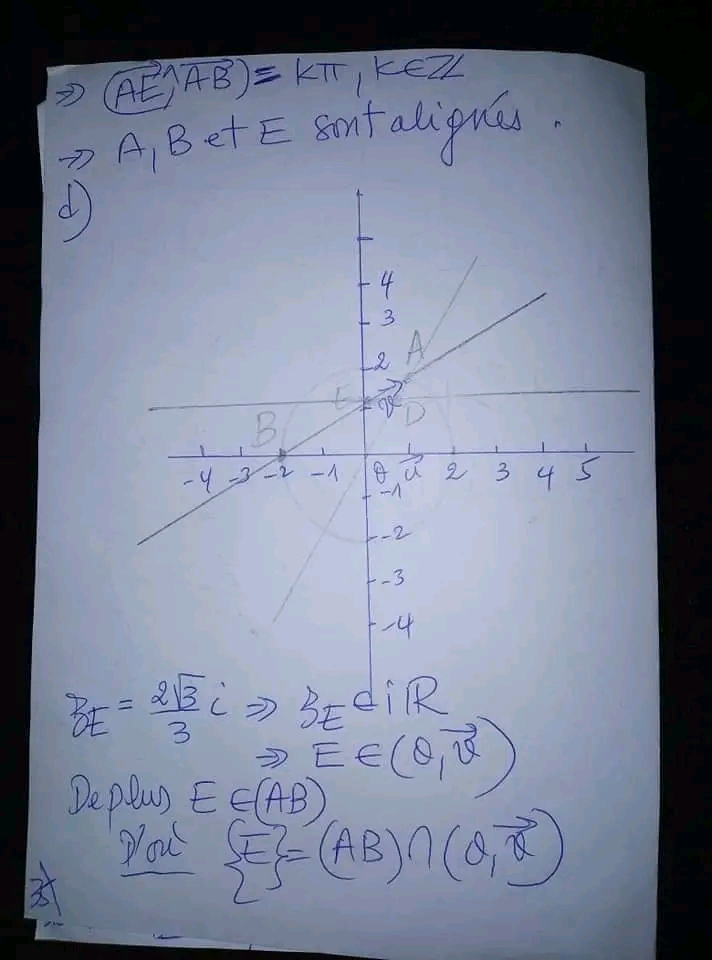 ⇒ (AE^→ ^ AB^→) = kπ, k∈ℤ
⇒ A, B et E sont alignés.
d)
4
3
2
A
E v^→ D
B
-4 -3 -2 -1 0 u^→ 2 3 4 5
-1
-2
-3
-4
z_E = 2√3/3 i ⇒ z_E ∈ iℝ
⇒ E ∈ (0, v^→)
De plus E ∈ (AB)
D'où {E} = (AB) ∩ (0, v^→)